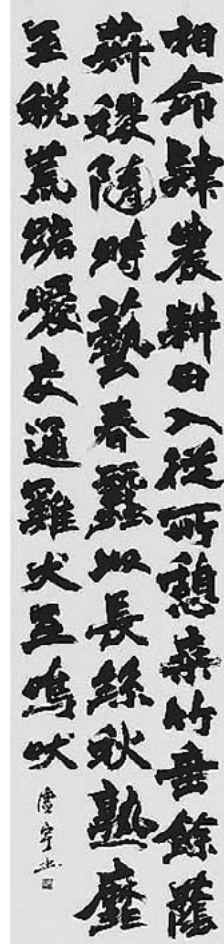 相命肆農耕日入從所憩桑竹垂餘蔭
菽稷隨時藝春蠶收長絲秋熟靡
王稅荒路曖交通雞犬互鳴吠